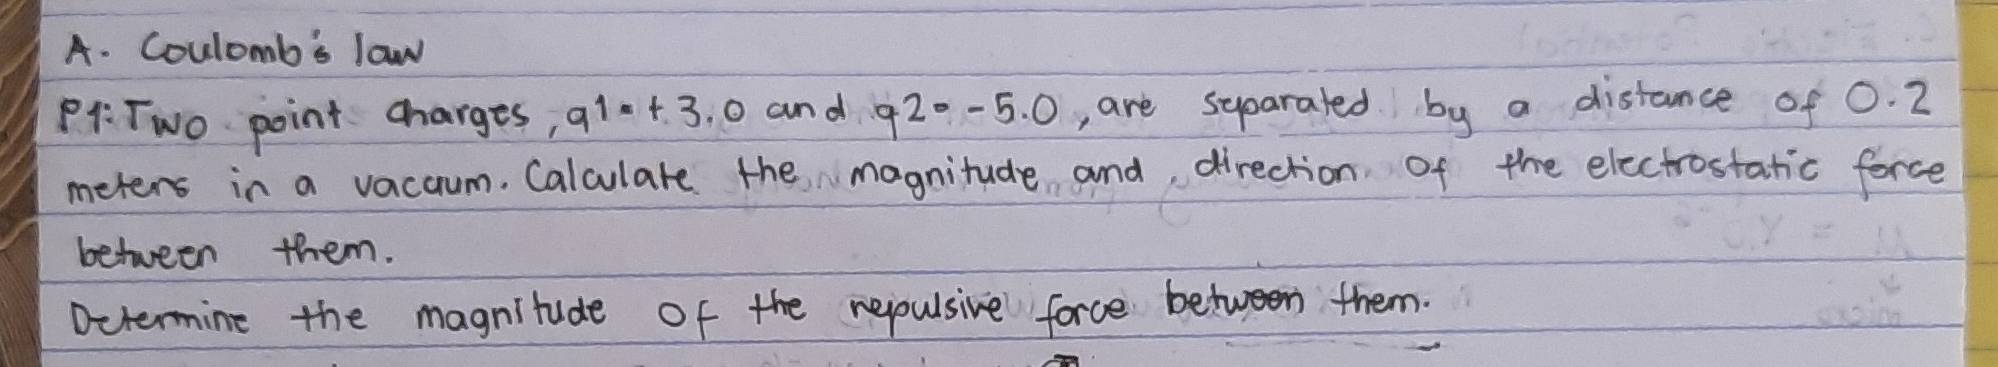 A. Coulomb's law
P1: Two point charges, q1 = + 3.0 and q2 = -5.0, are separated by a distance of 0.2
meters in a vacuum. Calculate the magnitude and direction of the electrostatic force
between them.
Determine the magnitude of the repulsive force between them.